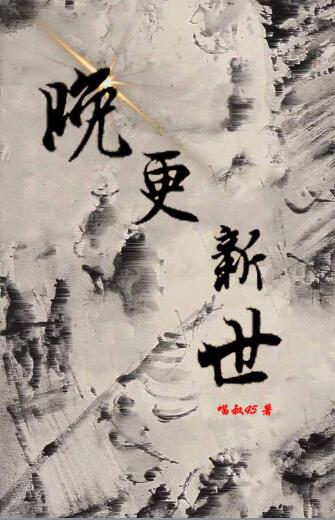 晚更新世
喵叔45 著